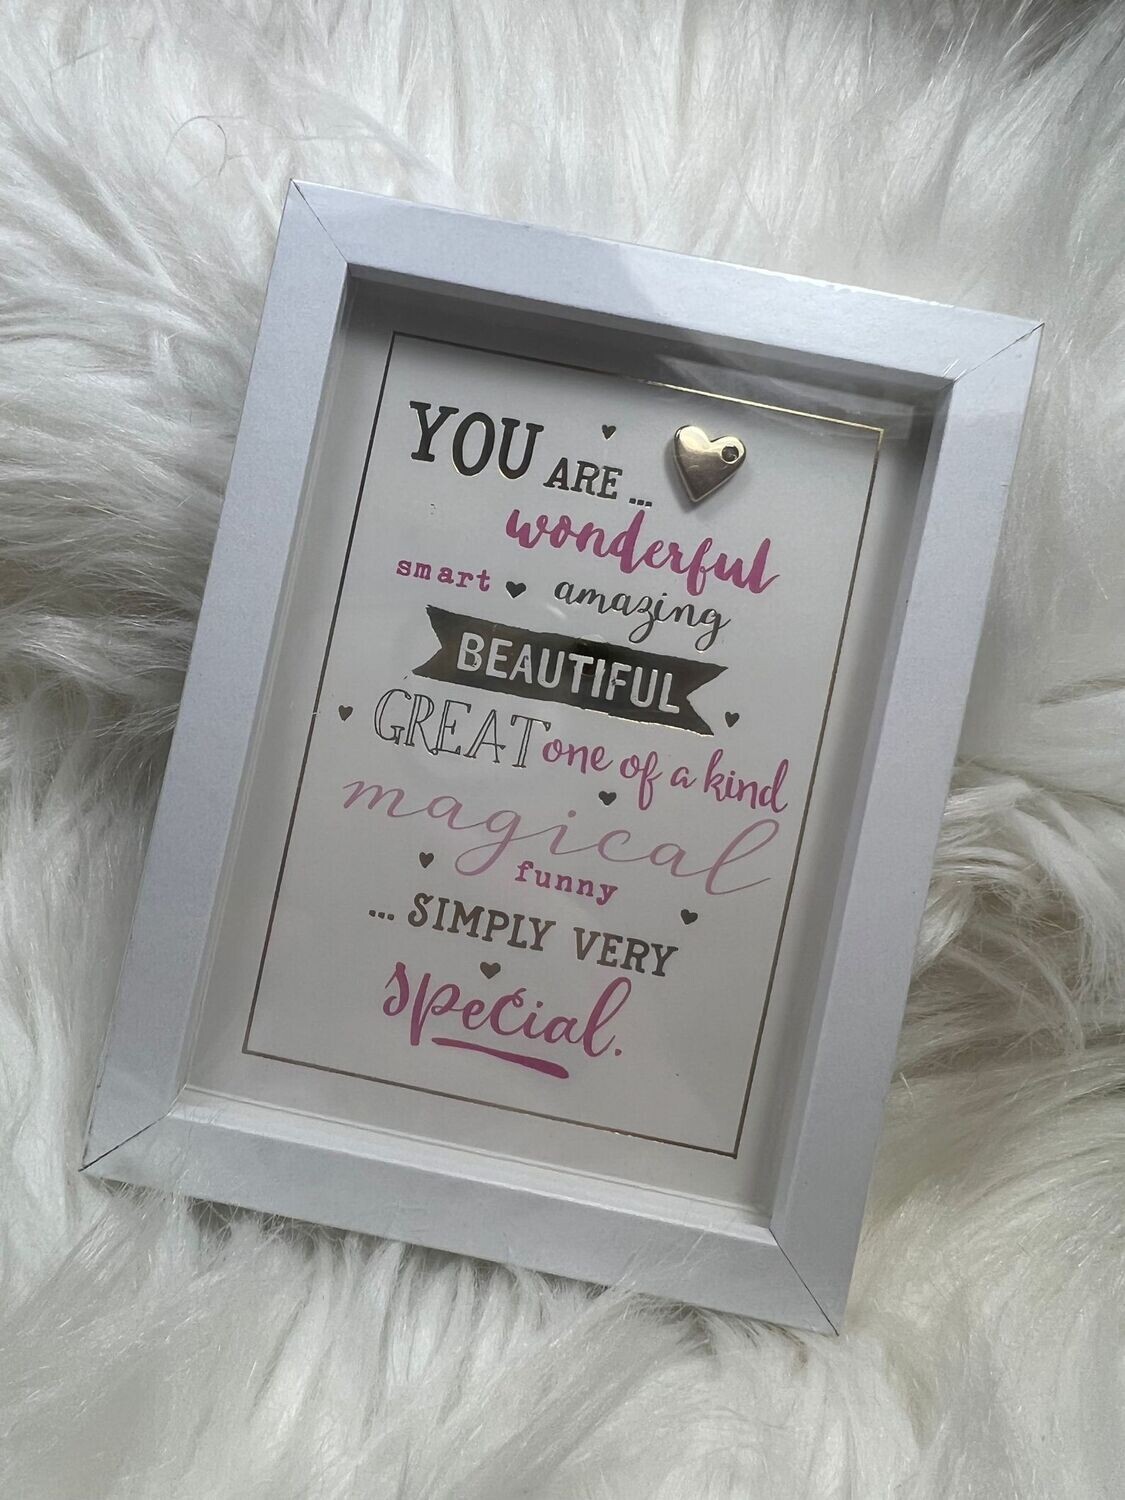 YOU ARE ...
wonderful
smart amazing
BEAUTIFUL
GREAT one of a kind
magical
funny
... SIMPLY VERY
special.